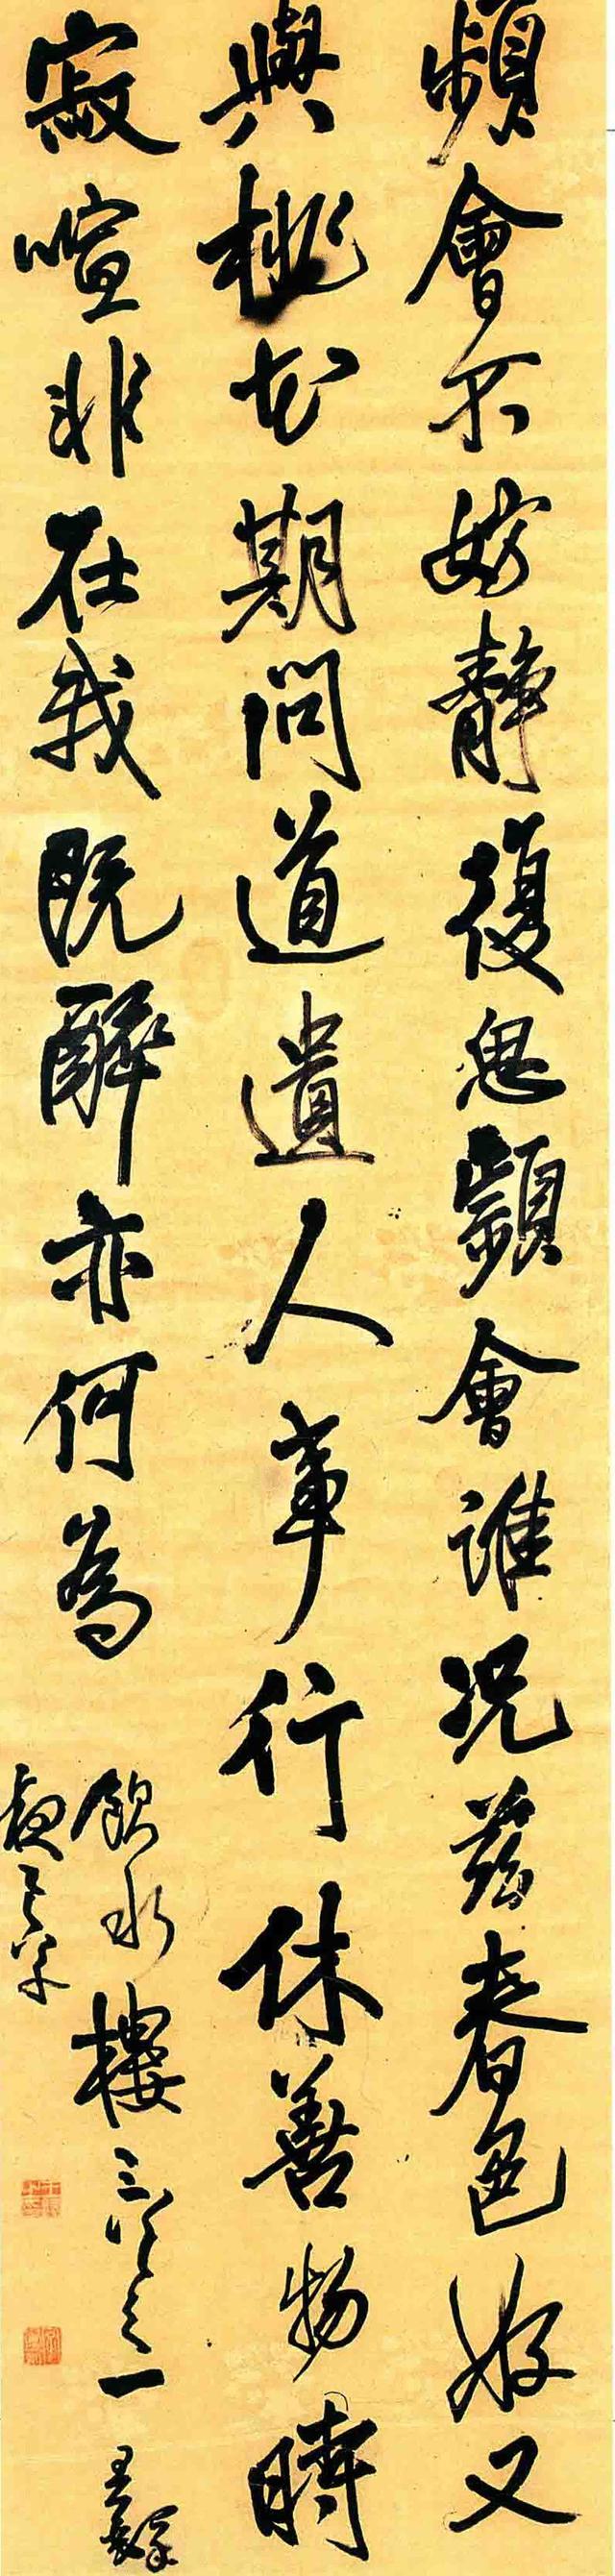 頻會不妨靜復思顰會誰況茲春色好又
與桃花期問道遺人事行休善物時
寂喧非在我既醉亦何為
飲水樓三
之一